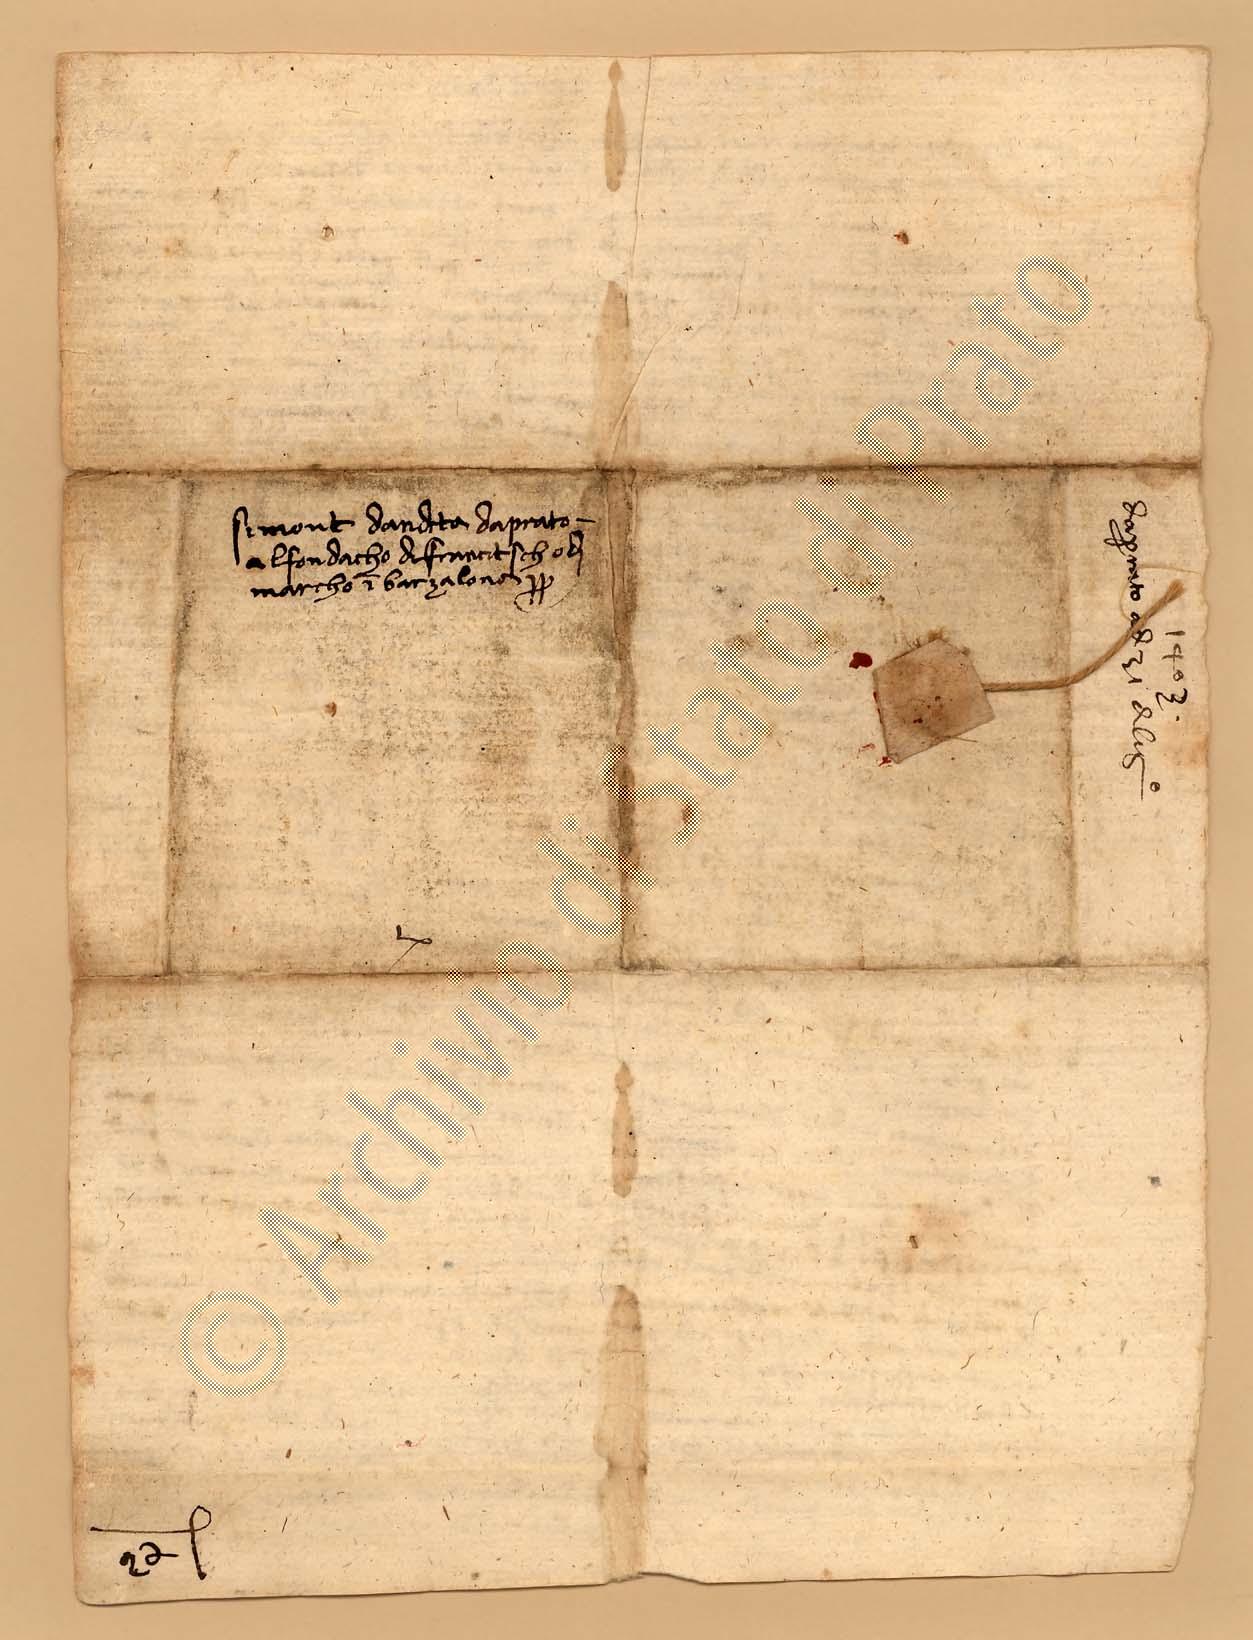 simone dandrea daprato
al fondacho di francescho di
marcho i barzalona pp
1403
da prato a dì 31 di luglo
22
© Archivio di Stato di Prato